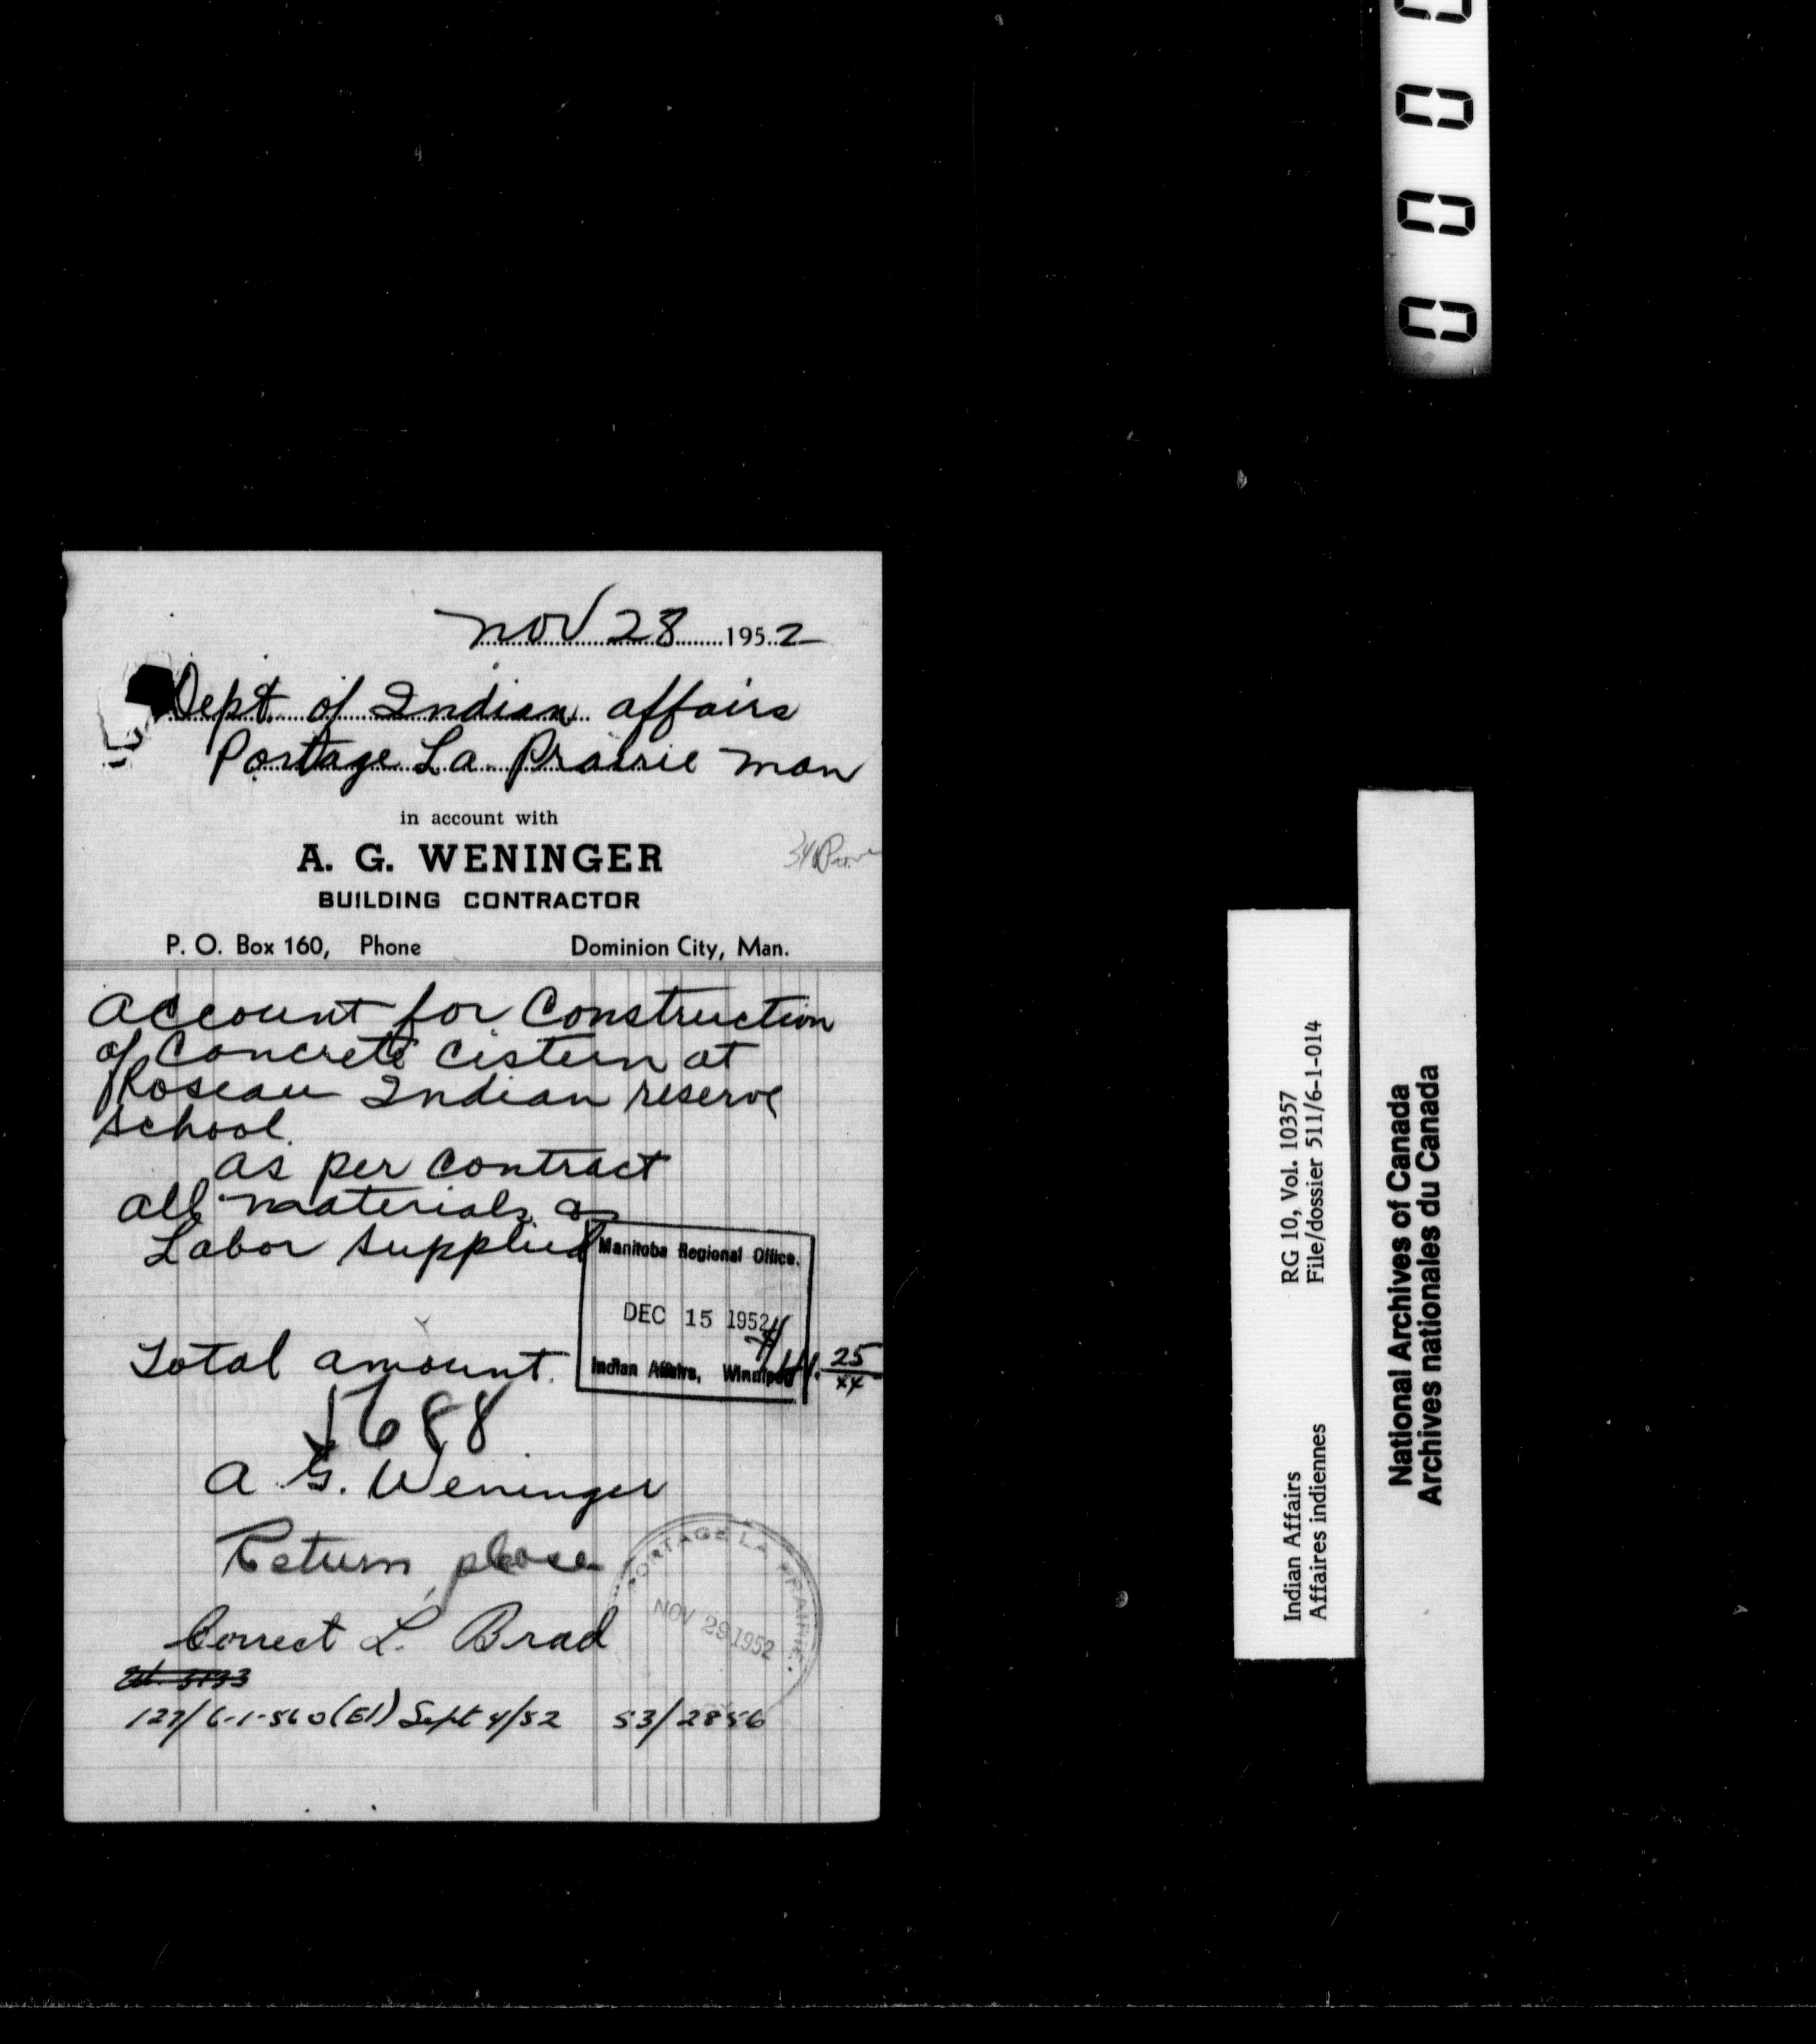 0 0 0
Nov 28 1952
Dept. of Indian affairs
Portage La Prairie Man
in account with
A. G. WENINGER
BUILDING CONTRACTOR
P. O. Box 160, Phone Dominion City, Man.
account for Construction
of Concrete cistern at
Roseau Indian reserve
School.
as per contract
all materials
Labor supplied
Manitoba Regional Office.
DEC 15 1952
Indian Affairs, Winnipeg
Total amount. 25/xx
A. G. Weninger
Return please
Correct L. Brad
PORTAGE LA PRAIRIE.
NOV 29 1952
127/6-1-560 (E1) Sept 4/52 53/2856
Indian Affairs RG 10, Vol. 10357
Affaires indiennes File/dossier 511/6-1-014
National Archives of Canada
Archives nationales du Canada